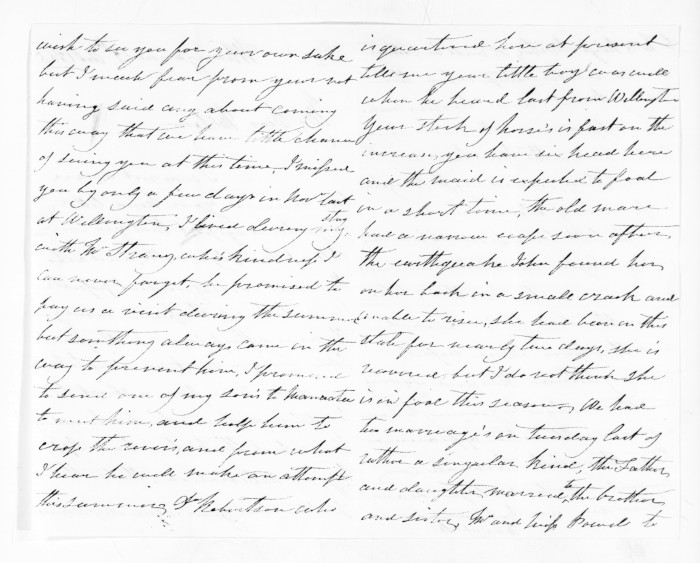 wish to see you for your own sake
but I much fear from your not
having said any about coming
this way that we have little chance
of seeing you at this time, I missed
you by only a few days in Nov last
at Wellington, I lived during my stay
with Mr Strang, who's kindness I
can never forget, he promised to
pay us a visit during the summer
but something always came in the
way to prevent him, I promised
to send one of my sons to Manawatu
to meet him, and help him to
cross the rivers, and from what
I hear he will make an attempt
this summer, Dr Robertson who
is quartered here at present
tells me your little boy was well
when he heard last from Wellington
Your stock of horses is fast on the
increase, you have six head here
and the maid is expected to foal
in a short time, the old mare
had a narrow escape soon after
the earthquake John found her
on her back in a small crack and
unable to rise, she had been in this
state for nearly two days, she is
recovered but I do not think she
is in foal this season, We had
two marriage's on tuesday last of
rather a singular kind, the Father
and daughter, married to the brother
and sister, Mr and Miss Powel to